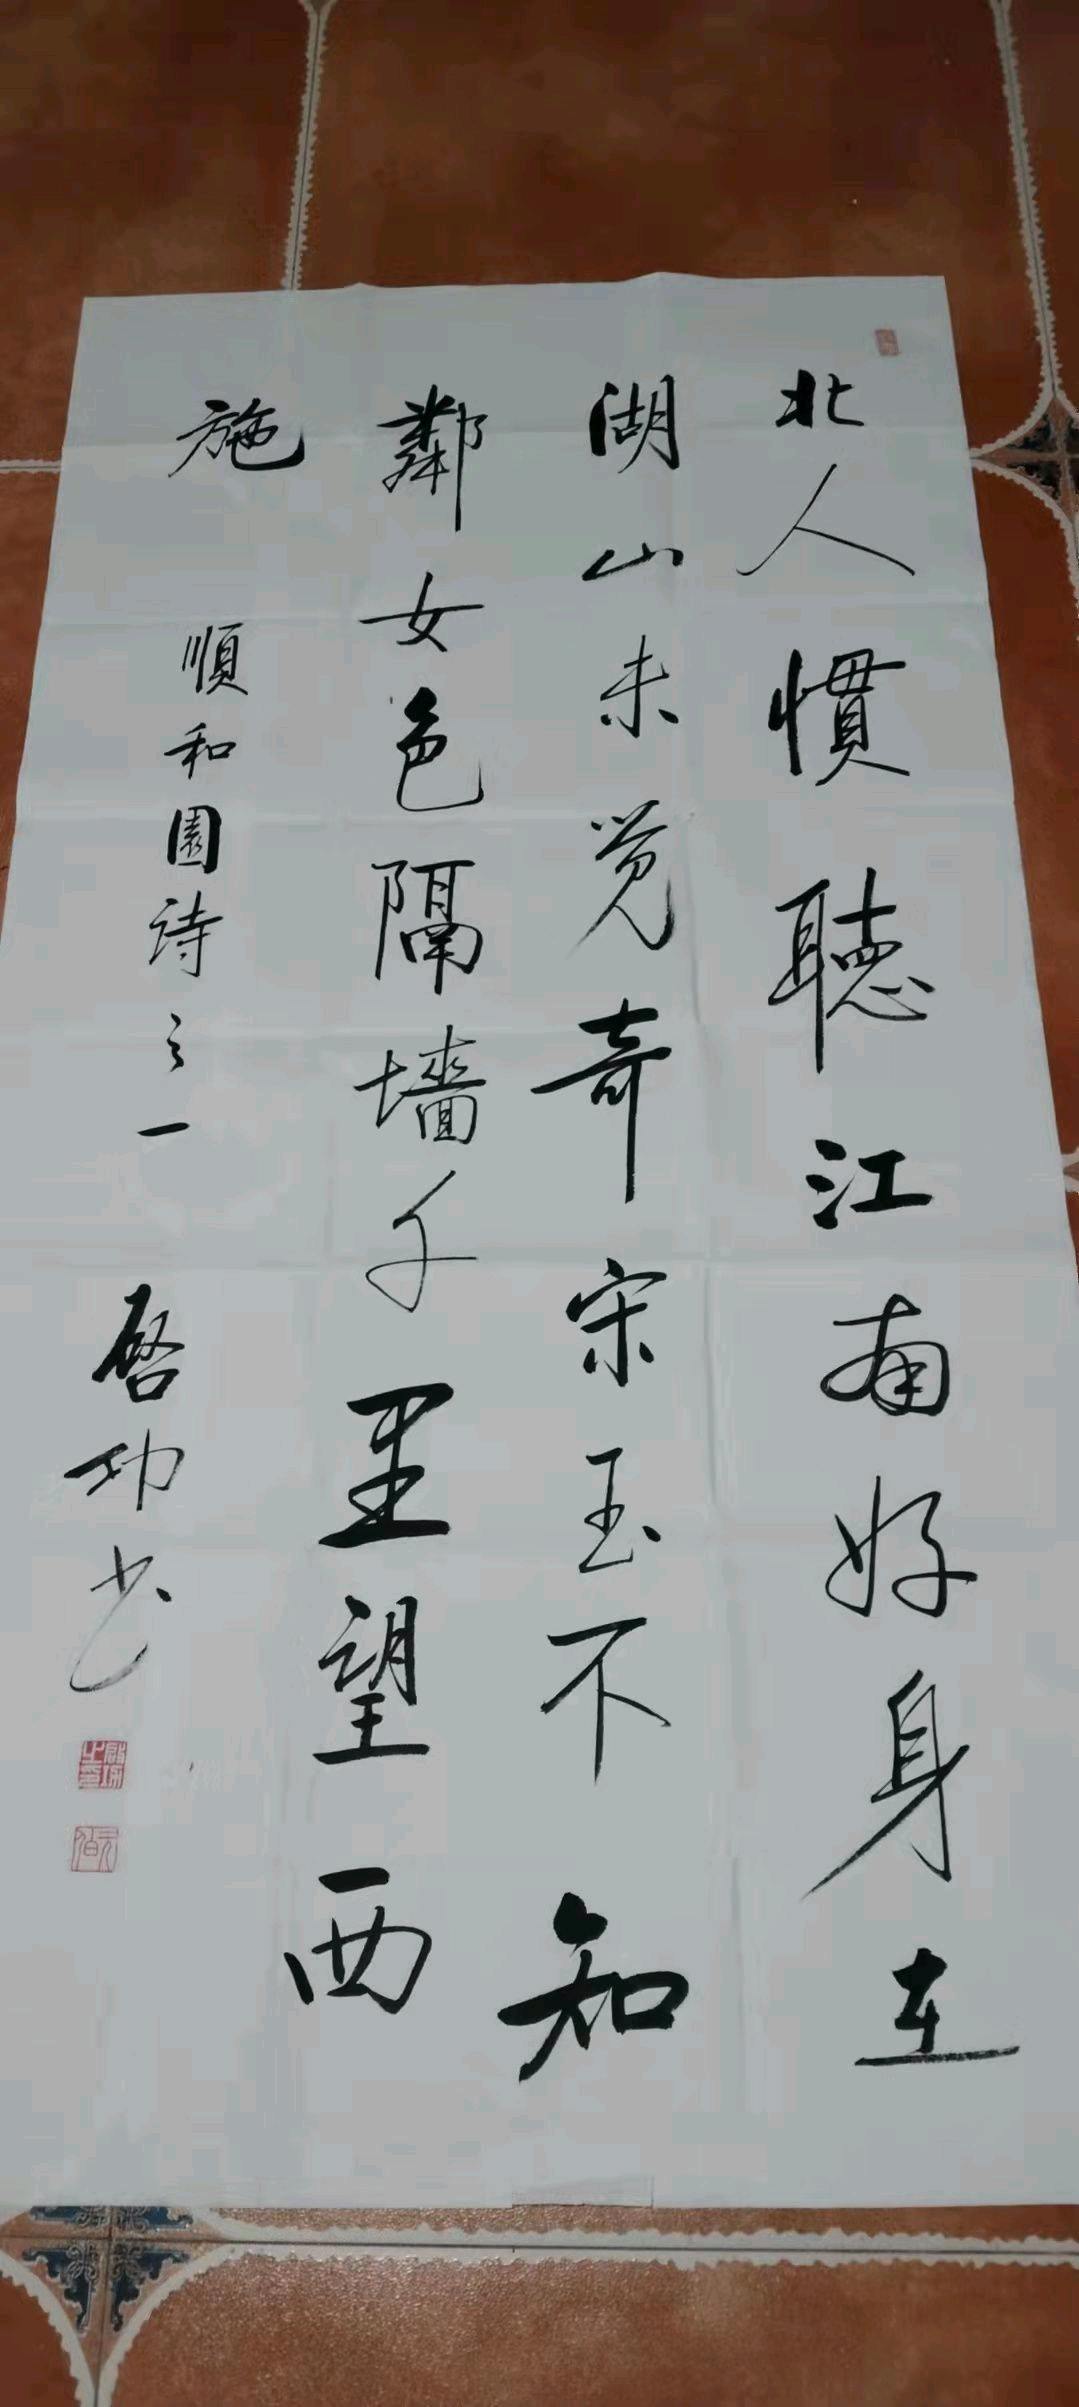 北人慣聽江南好身在
湖山未覺奇宋玉不知
鄰女色隔墻千里望西
施
順和園詩之一
啓功書
啟功之印
元伯